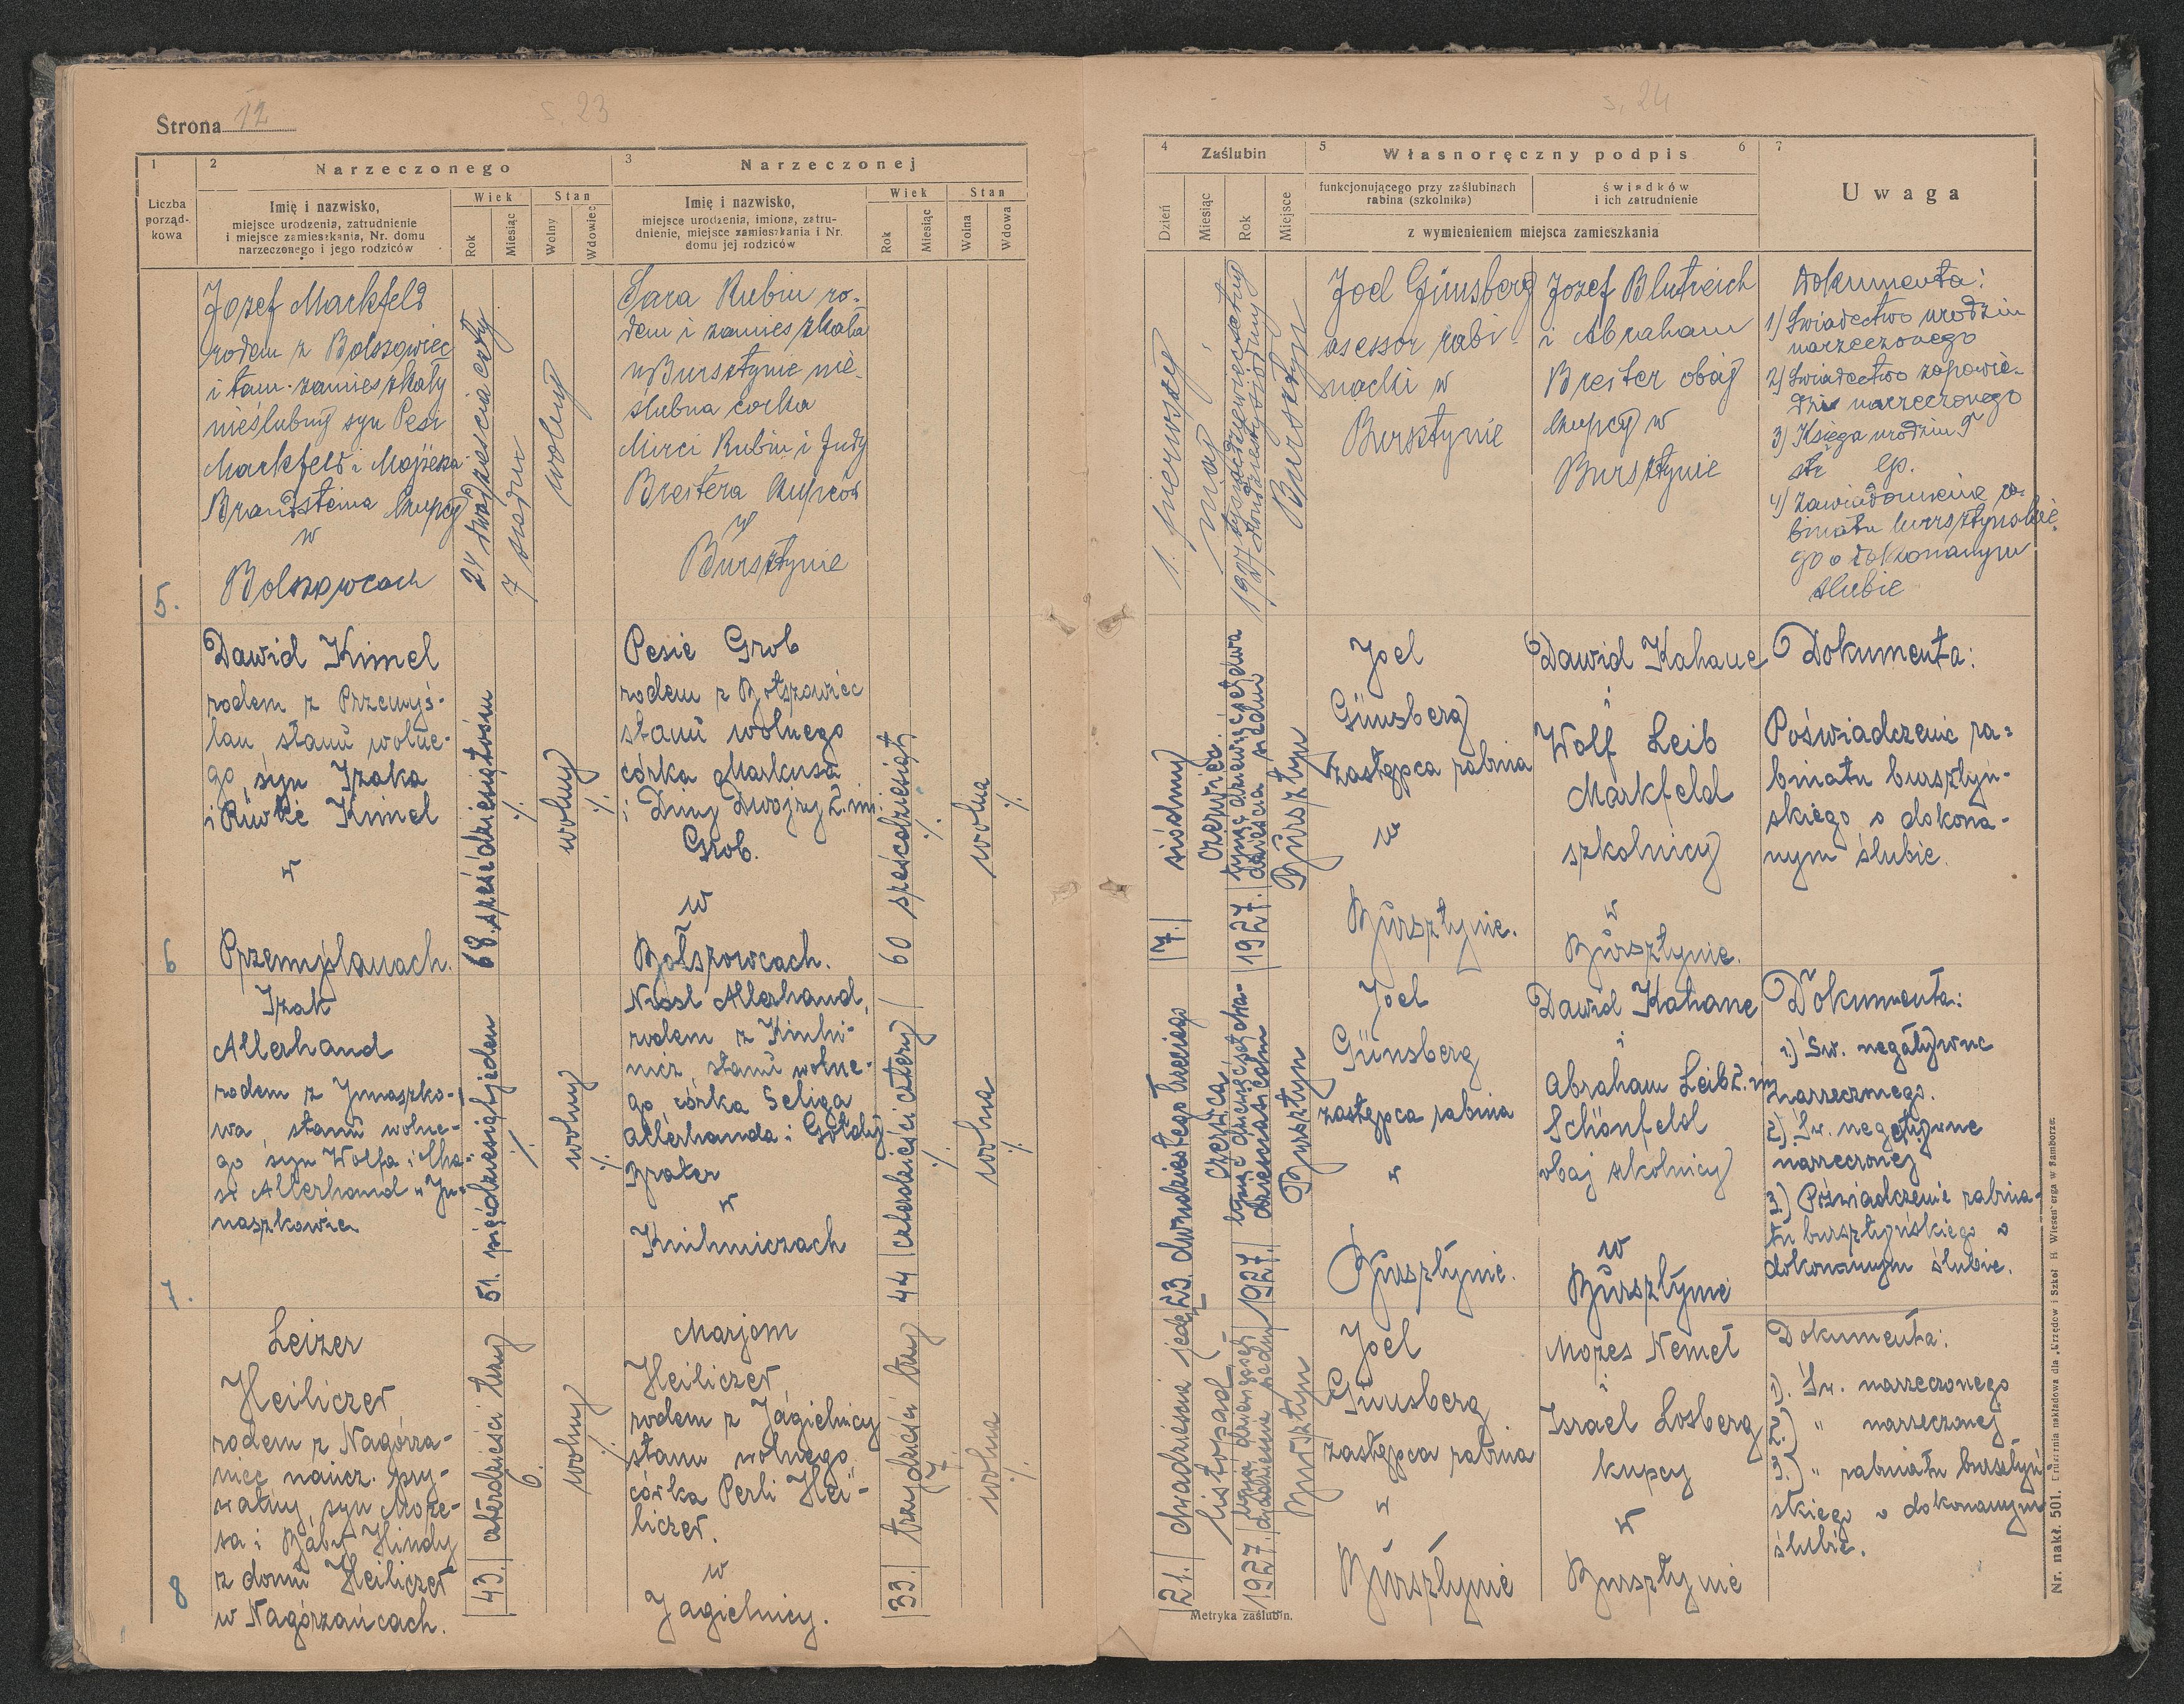 Strona 12
s. 23
1
2
Narzeczonego
3
Narzeczonej
Liczba
porząd-
kowa
Imię i nazwisko,
miejsce urodzenia, zatrudnienie
i miejsce zamieszkania, Nr. domu
narzeczonego i jego rodziców
Wiek
Stan
Rok
Miesiąc
Wolny
Wdowiec
Imię i nazwisko,
miejsce urodzenia, imiona, zatru-
dnienie, miejsce zamieszkania i Nr.
domu jej rodziców
Wiek
Stan
Rok
Miesiąc
Wolna
Wdowa
5.
Jozef Markfeld
rodem z Bolszowiec
i tam zamieszkały
nieślubny syn Pesi
Markfeld i Mojżesza
Brandsteina kupcy
w
Bolszowcach
24 dwadzieścia cztery
7 siedm
wolny
Sara Rubin ro-
dem i zamieszkała
w Bursztynie nie-
ślubna córka
Mirci Rubin i Judy
Breitera kupców
w
Bursztynie
6
Dawid Kimel
rodem z Przemyś-
lan, stanu wolne-
go, syn Izaka
i Riwke Kimel
w
Przemyślanach.
68. sześćdziesiątośm
./.
wolny
./.
Pesie Grob
rodem z Bołszowiec
stanu wolnego
córka Markusa
i Diny Dwojry 2. im.
Grob.
w
Bołszowcach.
60 sześćdziesiąt
./.
wolna
./.
7.
Izak
Allerhand
rodem z Junaszko-
wa, stanu wolne-
go syn Wolfa i Cha-
si Allerhand w Ju-
naszkowie
51. pięćdziesiąt jeden
./.
wolny
./.
Nissl Allerhand,
rodem z Knihi-
nicz, stanu wolne-
go, córka Seliga
Allerhanda i Gołdy
Brater
w
Knihiniczach
44 czterdzieści cztery
./.
wolna
./.
8
Leizer
Heiliczer
rodem z Nagórza-
niec naucz. pry-
watny, syn Moze-
sa i Báby Hindy
z domu Heiliczer
w Nagórzańcach.
43. czterdzieści trzy
6.
wolny
./.
Marjem
Heiliczer
rodem z Jagielnicy
stanu wolnego
córka Perli Hei-
liczer.
w
Jagielnicy.
33. trzydzieści trzy
7
wolna
./.
s. 24
4
Zaślubin
5
Własnoręczny podpis
6
7
Dzień
Miesiąc
Rok
Miejsce
funkcjonującego przy zaślubinach
rabina (szkolnika)
świadków
i ich zatrudnienie
z wymienieniem miejsca zamieszkania
Uwaga
1. pierwszy
maj
1927 tysiącdziewięćsetny
dwudziestysiódmy
Bursztyn
Joel Günsberg
asessor rabi-
nacki w
Bursztynie
Jozef Blutreich
i Abraham
Breiter obaj
kupcy w
Bursztynie
Dokumenta:
1) Świadectwo urodzin
narzeczonego
2) Świadectwo zapowie-
dzi narzeczonego
3) Księga urodzin T
str lp.
4) Zawiadomienie ra-
binatu bursztyńskie-
go o dokonanym
ślubie
7. siódmy
czerwiec
1927. tysiąc dziewięćset dwa
dzieścia siedm
Bursztyn
Joel
Günsberg
zastępca rabina
w
Bursztynie.
Dawid Kahane
i
Wolf Leib
Markfeld
szkolnicy
w
Bursztynie.
Dokumenta:
Poświadczenie ra-
binatu bursztyń-
skiego o dokona-
nym ślubie.
23. dwudziestego trzeciego
czerwca
1927. tysiąc dziewięćset dwa-
dzieścia siedm
Bursztyn
Joel
Günsberg
zastępca rabina
w
Bursztynie.
Dawid Kahane
i
Abraham Leib 2. im
Schönfeld
obaj szkolnicy
w
Bursztynie
Dokumenta:
1.) Św. negatywne
narzeczonego.
2.) Św. negatywne
narzeczonej
3.) Poświadczenie rabina-
tu bursztyńskiego o
dokonanym ślubie.
21. dwadzieścia jeden
listopad
1927.
dwadzieścia siedm
Bursztyn
Joel
Günsberg
zastępca rabina
w
Bursztynie
Mozes Nemet
i
Israel Losberg
kupcy
w
Bursztynie
Dokumenta:
1). Św. narzeczonego
2.) " narzeczonej
3.) " rabinatu bursztyń
skiego o dokonanym
ślubie.
Metryka zaślubin.
Nr. nakł. 501. Drukarnia nakładowa dla „Urzędów i Szkół” H. Wiesenberga w Samborze.